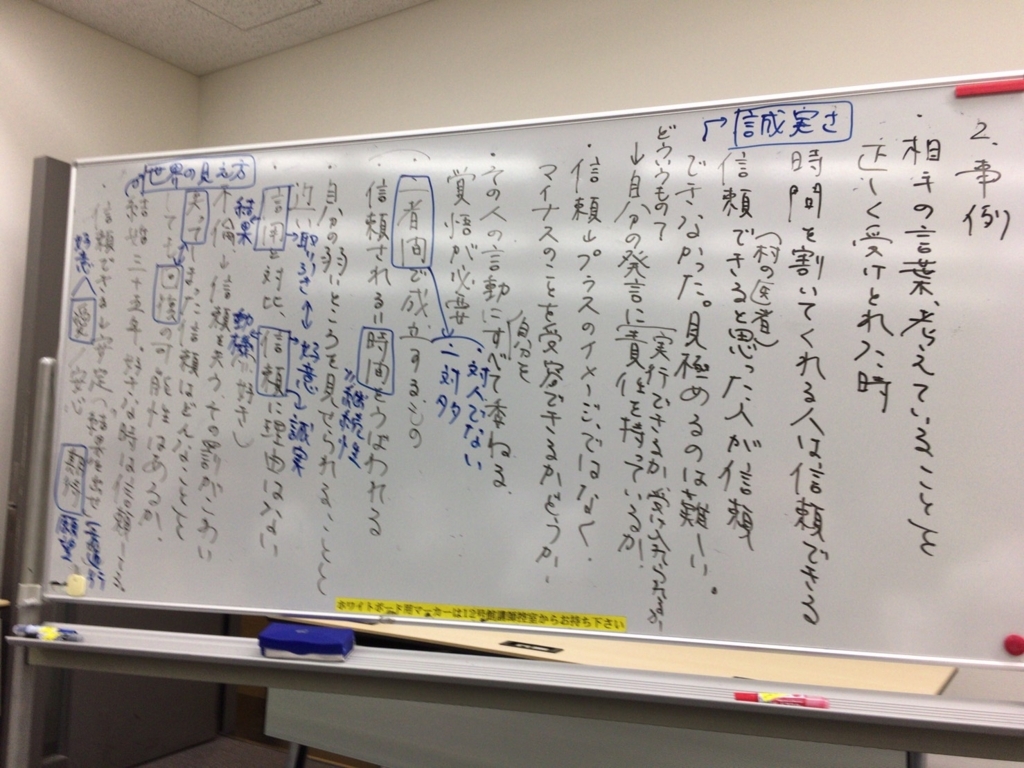 2. 事例
・相手の言葉、考えていることを
正しく受けとれた時
時間を割いてくれる人は信頼できる
(村の医者)
信頼できると思った人が信頼
できなかった。見極めるのは難しい。
誠実さ
どういうもので
実行できるか
↓自分の発言に責任を持っているか
・信頼→プラスのイメージではなく、
マイナスのことを受容できるかどうか
自分を
・その人の言動にすべて委ねる
覚悟が必要
・対人でない
・一対多
二者間で成立するもの
信頼される=時間をうばわれる
継続
自分の弱いところを見せられること
近い取引き↔好意→誠実
信用と対比、信頼に理由はない
結果
動機(好き)
不倫→信頼を失う、その罰がこわい
失ってしまった信頼はどんなことを
しても回復の可能性はあるか
世界の見え方
結婚三十五年。好きな時は信頼
・信頼できる→安定
好意へ
愛/安心
期待
願望
ホワイトボード用マーカーは12号館講師控室からお持ち下さい